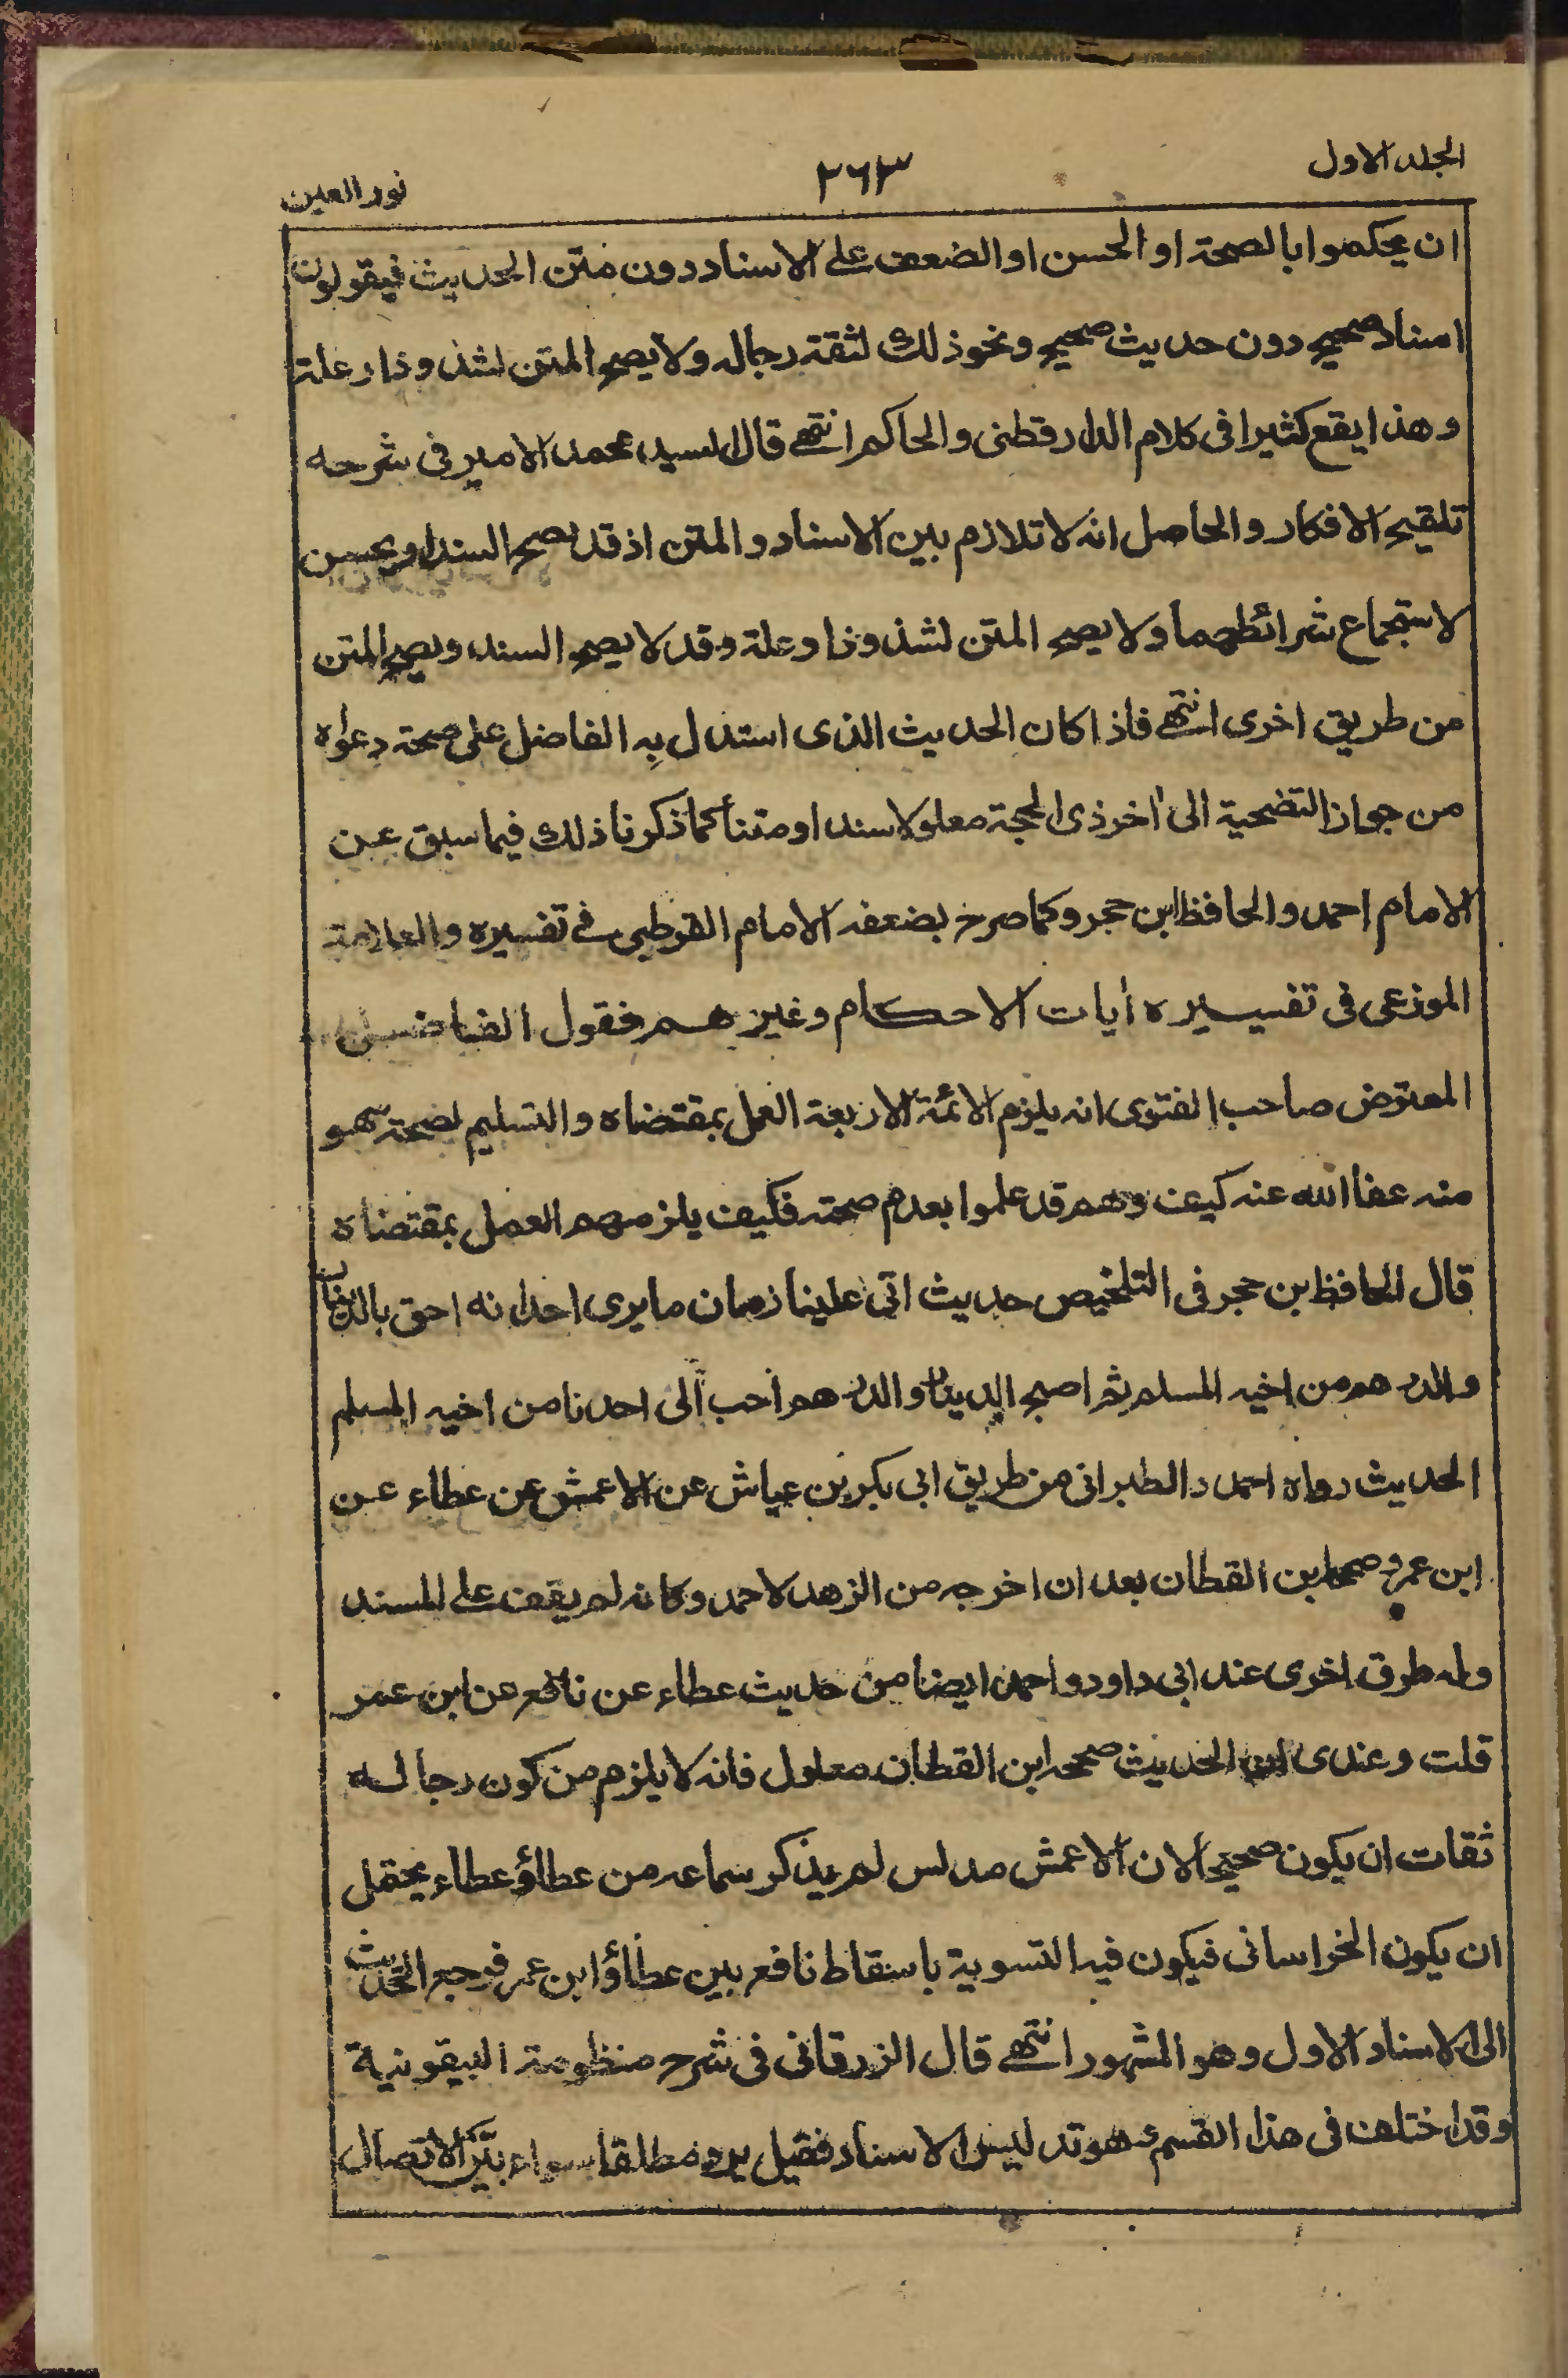 الجلد الاول
٢٦٣
نور العين
ان يحكموا بالصحة او الحسن او الضعف على الاسناد دون متن الحديث فيقولون
اسناد صحيح دون حديث صحيح ونحو ذلك لثقة رجاله ولا يصح المتن لشذوذ او علة
وهذا يقع كثيرا فى كلام الدارقطنى والحاكم انتهى قال السيد محمد الامير فى شرحه
تلقيح الافكار والحاصل انه لا تلازم بين الاسناد والمتن اذ قد يصح السند او يحسن
لاستجماع شرائطهما ولا يصح المتن لشذوذ او علة وقد لا يصح السند ويصح المتن
من طريق اخرى انتهى فاذا كان الحديث الذى استدل بِه الفاضل على صحة دعواه
من جواز التضحية الى اٰخر ذى الحجة معلولا سندا ومتناً كما ذكرنا ذلك فيما سبق عن
الامام احمد والحافظ ابن حجر وكما صرح بضعفه الامام القرطبى فى تفسيره والعلامة
الموزعى فى تفسيره اٰيات الاحكام وغيرهم فقول الفاضل
المعترض صاحب الفتوى انه يلزم الائمة الاربعة العمل بمقتضاه والتسليم لصحته سهو
منه عفا الله عنه كيف وهم قد علموا بعدم صحته فكيف يلزمهم العمل بمقتضاه
قال الحافظ بن حجر فى التلخيص حديث اتى علينا زمان ما يرى احدا نه احق بالدينار
والدرهم من اخيه المسلم ثم اصبح الدينار والدرهم أحب الى احدنا من اخيه المسلم
الحديث رواه احمد والطبرانى من طريق ابى بكر بن عياش عن الاعمش عن عطاء عن
ابن عمر وصححه ابن القطان بعد ان اخرجه من الزهد لاحمد وكانه لم يقف على المسند
وله طرق اخرى عند ابى داود واحمد ايضا من حديث عطاء عن نافع عن ابن عمر
قلت وعندى ان الحديث صححه ابن القطان معلول فانه لا يلزم من كون رجاله
ثقات ان يكون صحيحا لان الاعمش مدلس لم يذكر سماعه من عطاؤ عطاء يحتمل
ان يكون الخراسانى فيكون فيه التسوية باسقاط نافع بين عطاؤ ابن عمر فرجع الحديث
الى الاسناد الاول وهو المشهور انتهى قال الزرقانى فى شرح منظومة البيقونية
وقد اختلف فى هذا القسم وهو تدليس الاسناد فقيل يرد مطلقا سواء بيّن الاتصال